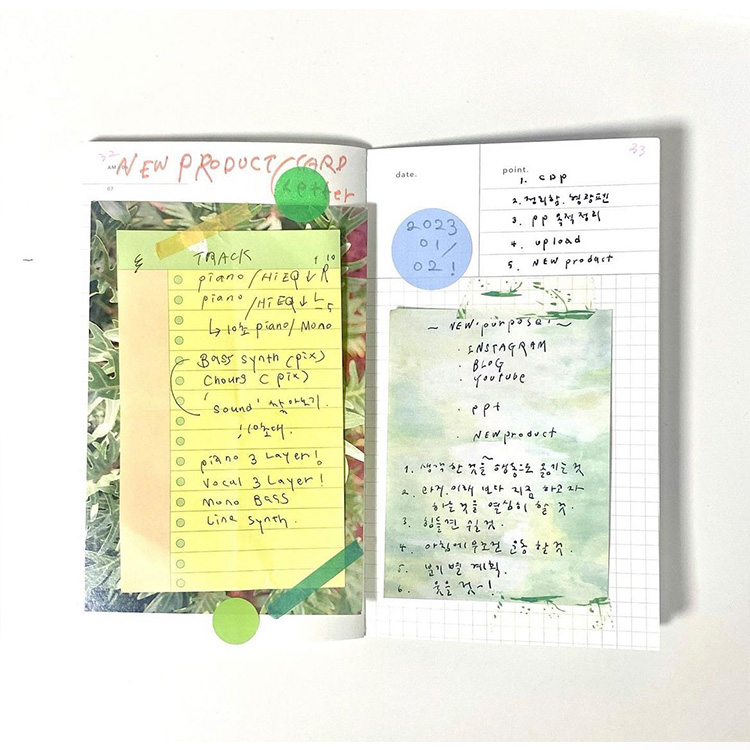 32
NEW PRODUCT/CARD
Letter
AM
07
TRACK
piano/Hi EQ↓R
piano
/Hi EQ↓L
↳10초 piano/Mono
Bass Synth (pix)
Chours (pix)
'Sound' 찾아보기
10초대.
piano 3 Layer!
Vocal 3 Layer!
Mono BASS
Line Synth.
33
date.
point.
2023
01/
02!
1. CDP
2. 정리함.
3. pp 목적 정리
4. upload
5. NEW product
~ NEW.purpose! ~
· INSTAGRAM
· BLOG
· Youtube
· ppt
· NEW product
1. 생각한 것을 행동으로 옮기는 것
2. 과거.미래 보다 지금 하고자
하는것을 열심히 할 것.
3. 힘들면 쉴것.
4. 아침에 무조건 운동 할 것.
5. 분기별 계획.
6. 웃을 것~!